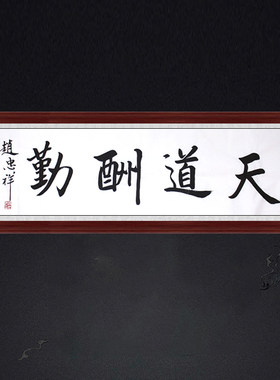 天道酬勤
趙忠祥